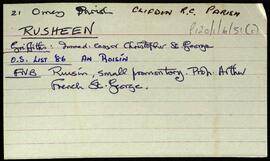 21 Omey Parish CLIFDEN R.C. PARISH
P120/1/6/51(2)
RUSHEEN
Griffith: Immed. Lessor Christopher St. George
O.S. LIST '86 AN ROISÍN
FNB Ruisín, small promontory. Prop. Arthur
French St. George.